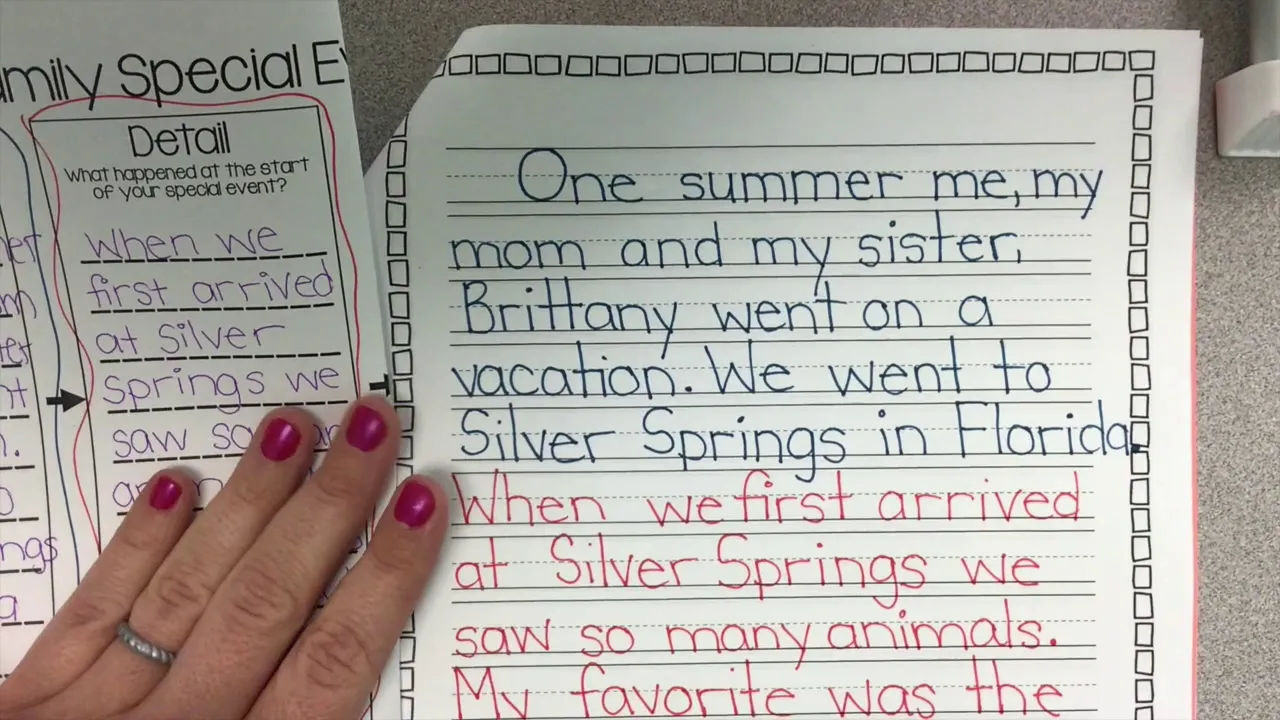 Family Special Ev
Detail
What happened at the start
of your special event?
When we
first arrived
at Silver
Springs we
saw so
One summer me, my
mom and my sister,
Brittany went on a
vacation. We went to
Silver Springs in Florida.
When we first arrived
at Silver Springs we
saw so many animals.
My favorite was the